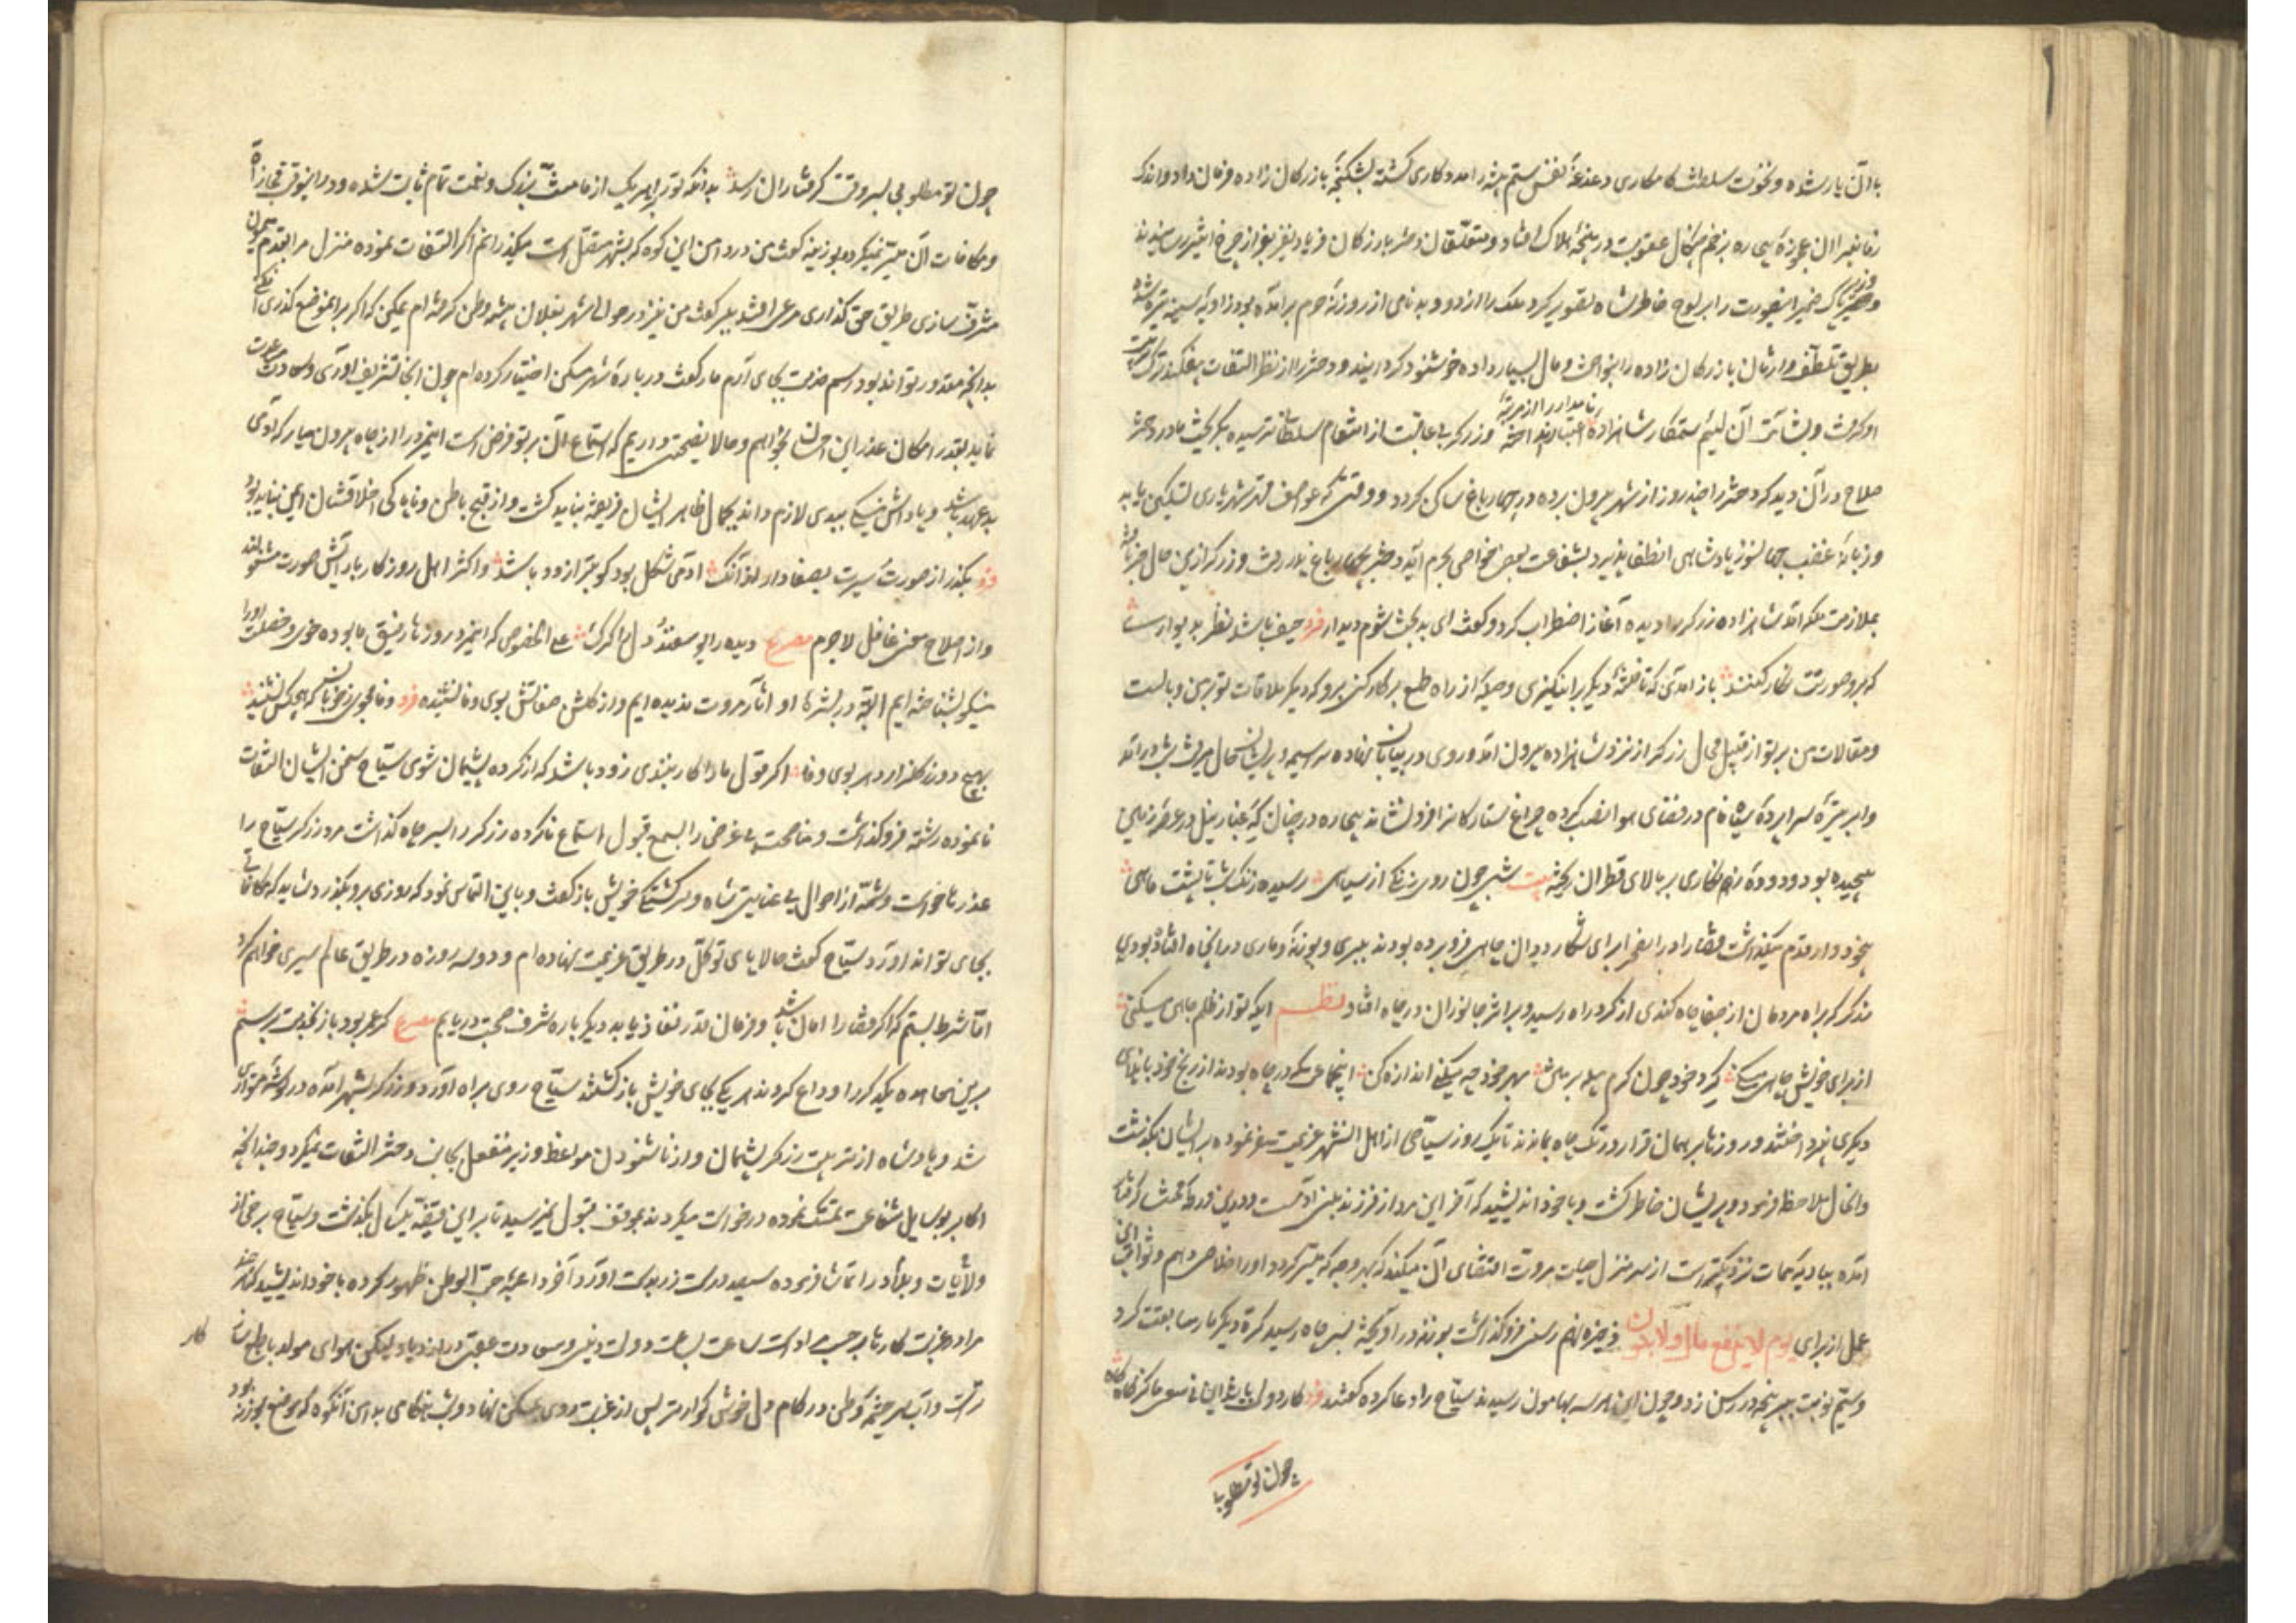 با آن یار شده و نخوت سلطنت کامکاری دغدغهٔ نفس ستم پیشه را مددکاری گشته بشکنجهٔ بازرکان زاده فرمان داد و اندک
زمانیرا آن بیچاره بزخم چنکال عقوبت در پنجهٔ هلاک افتاد و متعلقان دختر بازرکان فریاد نفیر از چرخ اثیر رسانیدند
و ضمیر اینصورت را بر لوح خاطر شاه تصویر کرد ملک را از دود بدنامی از روزنهٔ حرم برآمده بود زاویهٔ سینه تیره شد
بطریق تلطف وارثان بازرکان زاده را بنواخت و مال بسیار داده خوشنود کردانید و دختر را از نظر التفات بیفکند ترک تربیت
او کرفت و بشآمت آن لئیم ستمکار شاهزاده نامدار را از مرتبهٔ اعتبار بینداخته و زرکر بی عاقبت از انتقام سلطانی ترسیده بکریخت مادر دختر
صلاح در آن دید که دختر را چند روز از شهر بیرون برده در چهار باغ ساکن کردد و وقتی که عواصف قهر شهریاری تسکین یابد
و زبانهٔ غضب جهانسوز پادشاهی انطفا پذیرد بشفاعت بعضی خواص بحرم آید دختر بچهار باغ بدر رفت و زرکر ازین حال خبر یافته
بملازمت ملکه آمد شاهزاده زرکر را دیده آغاز اضطراب کرد و کفت ای بدبخت شوم دیدار فرد حیف باشد نظر بدیواری
که برو صورتت نکار کنند باز آمدی که تا فتنهٔ دیکر برانکیزی و حیلهٔ از راه طمع بر کار کنی برو که دیکر ملاقات تو بر من وبالست
و مقالات من بر تو از قبیل محال زرکر از نزد شاهزاده بیرون آمد و روی در بیابان نهاده سراسیمه و پریشان حال میرفت شب درآمد
و ابر تیره سراپردهٔ سیاه فام در فضای هوا نصب کرده چراغ ستارکانرا فرو نشاند بیچاره در چنان که غبار نیل در عرصهٔ زمین
پیچیده بود و دودهٔ زنکاری بر بالای قطران ریخته بیت شبی چون روی زنکی از سیاهی رسیده زنک شب تا پشت ماهی
بیخود وار قدم میکذاشت قضا را در آن صحرا برای شکار ددان چاهی فرو برده بودند ببری و بوزنهٔ و ماری در آن چاه افتاده بودی
مذکر که براه مردمان از جفا چاه کندی از کرد راه رسید و بر اثر جانوران در چاه افتاد نظم ایکه تو از ظلم چاهی میکنی
از برای خویش چاهی میکنی کرد خود چون کرم پیله بر متن بهر خود چه میکنی اندازه کن این جماعت که در چاه بودند از رنج خود بایذای
دیکری نپرداختند و روزها بر همان قرار در تک چاه بماندند تا یک روز سیاحی از اهل آن شهر عزیمت سفر نموده بر ایشان بکذشت
و آنحال ملاحظه فرمود و پریشان خاطر کشت و با خود اندیشید که آخر این مرد از فرزند بنی آدمست و درین ورطهٔ محنت کرفتار
آمده ببادیهٔ ممات نزدیکتر است از سرمنزل حیات مروت اقتضای آن میکند که بهر وجه که میسر کردد او را خلاصی دهم و ثواب این
عمل از برای یوم لا ینفع مال و لا بنون ذخیره نهم رسن فرو کذاشت بوزنه در آویخته بسر چاه رسید کرهٔ دیکر مار سابقت کرد
و سیم نوبت ببر پنجه در رسن زد و چون این هر سه بهامون رسیدند سیاح را دعا کرده کفتند فرد
چون تو مطلوبی
چون تو مطلوبی بسر وقت کرفتاران رسد بدانکه تو بر هر یک از ما منت بزرک و نعمت تمام ثابت شده و در اینوقت مجازاة
و مکافات آن میسر نمیکردد بوزینه کفت من در دامن این کوه که بشهر متصل است میکذرانم اکر التفات نموده منزل مرا بقدم میمون
مشرف سازی طریق حق کذاری مرعی افتد ببر کفت من نیز در حوالی شهر بفلان بیشه وطن کرفته ام ممکن که اکر بر آنموضع کذری افکنی
بدانچه مقدور تواند بود رسم خدمت بجای آرم مار کفت در بارهٔ شهر مسکن اختیار کرده ام چون آنجا تشریف آوری و سعادت مساعدت
نماید بقدر امکان عذر این احسان بخواهم و حالا نصیحتی داریم که استماع آن بر تو فرض است اینمرد را از چاه بیرون میار که آدمی
بدعهد باشد و پاداش نیکی ببدی لازم داند بجمال ظاهر ایشان فریفته نباید کشت و از قبح باطن و ناپاکی اخلاقشان ایمن نباید بود
فرد بکذر از صورت و سیرت بصفا دار از آنک آدمی شکل بود کو بتر از دد باشد و اکثر اهل روزکار بآرایش صورت مشغولند
و از اصلاح معنی غافل لاجرم مصرع دیده را یوسفند و دل را کرک علی الخصوص که اینمرد روزها رفیق ما بوده خوی و خصلت او را
نیکو بشناخته ایم البته در بشرهٔ او آثار مروت ندیده ایم و از کلشن صفاتش بوی وفا نشنیده فرد وفا مجوی ز خوبان که هیچکس نشنید
بهیچ دور ز کلزار دهر بوی وفا اکر قول ما را کار نبندی زود باشد که از کرده پشیمان شوی سیاح سخن ایشان التفات
نانموده رشته فرو کذاشت و مناصحت بی غرض را بسمع قبول استماع ناکرده زرکر را بسر چاه کذاشت مرد زرکر سیاح را
عذرها خواست و شمهٔ از احوال بی عنایتی شاه و سرکشتکی خویش باز کفت و بآن التماس نمود که روزی برو بکذرد شاید که مکافاتی
بجای تواند آورد سیاح کفت حالا پای توکل در طریق عزیمت نهاده ام و دو سه روزه در طریق عالم سیری خواهم کرد
اما شرط بستم که اکر قضا را امان باشد و فرمان قدر نفاذ یابد دیکر باره شرف صحبت دریابم مصرع کر عمر بود باز بخدمت برسیم
برین معاهده یکدیکر را وداع کردند هر یکی بجای خویش باز کشتند سیاح روی براه آورد و زرکر بشهر آمده در کوشهٔ متواری
شد و پادشاه از تربیت زرکر پشیمان و از ناشنودن مواعظ وزیر منفعل بجانب دختر التفات نمیکرد و چندانچه
اکابر بوسایل شفاعت تمسک نموده درخواست میکردند بموقف قبول نمیرسید تا بر این قضیه یکسال بکذشت و سیاح برخی از
ولایات و بلاد را تماشا فرموده سیصد درست زر بدست آورد آخر داعیهٔ حب الوطن ظهور کرده با خود اندیشید که هر چند
مرا در غربت کارها بر حسب مراد است ساعت بساعت دولت دینی و سعادت عقبی در ازدیاد لیکن هوای مولد با طبع
کار
تراست و آب سرچشمهٔ وطن در کام دل خوش کوارتر پس از غربت روی بمسکن نهاد و شبهنکامی بدامن آنکوه که موضع بوزنه بود